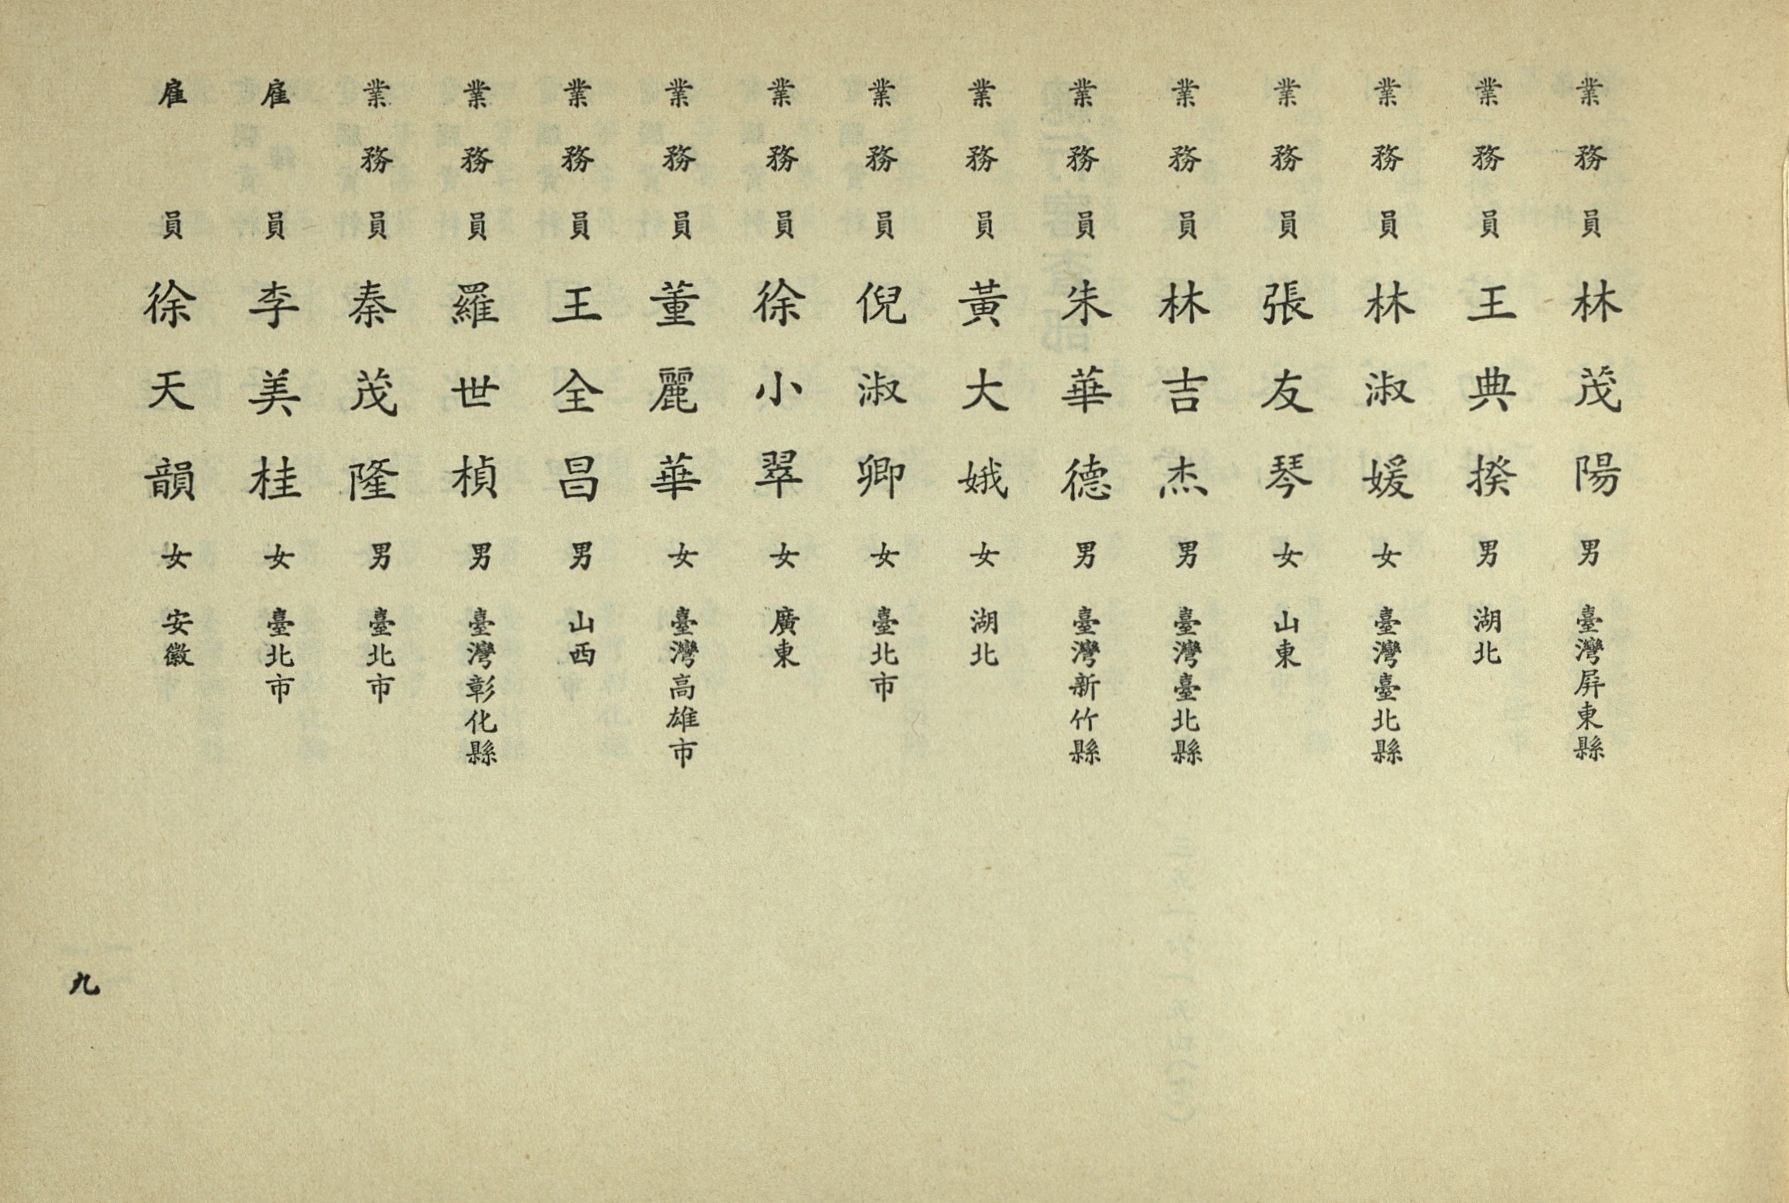 業務員 林茂陽 男 臺灣屏東縣
業務員 王典揆 男 湖北
業務員 林淑媛 女 臺灣臺北縣
業務員 張友琴 女 山東
業務員 林吉杰 男 臺灣臺北縣
業務員 朱華德 男 臺灣新竹縣
業務員 黃大娥 女 湖北
業務員 倪淑卿 女 臺北市
業務員 徐小翠 女 廣東
業務員 董麗華 女 臺灣高雄市
業務員 王全昌 男 山西
業務員 羅世楨 男 臺灣彰化縣
業務員 秦茂隆 男 臺北市
雇員 李美桂 女 臺北市
雇員 徐天韻 女 安徽
九